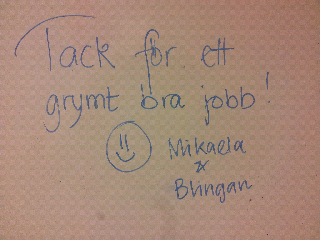 Tack för ett
grymt bra jobb!
Mikaela
&
Blingan